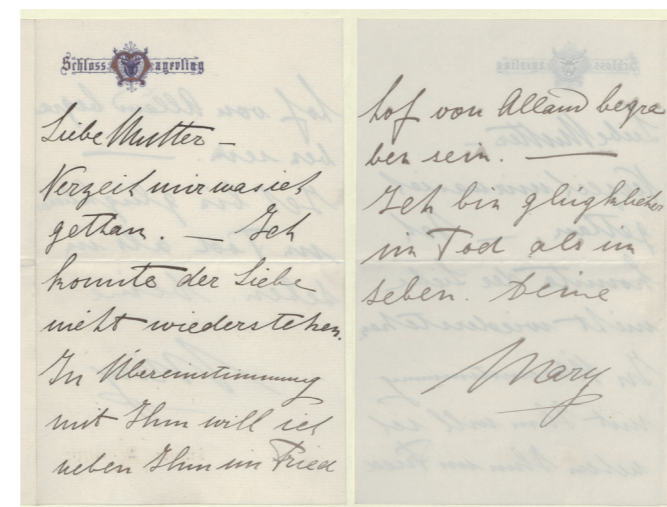 Schloss Mayerling
Liebe Mutter –
Verzeit mir was ich
gethan. — Ich
konnte der Liebe
nicht wiederstehen.
In Übereinstimmung
mit Ihm will ich
neben Ihm im Fried
hof von Alland begra
ben sein. —
Ich bin glücklicher
im Tod als im
Leben. Deine
Mary